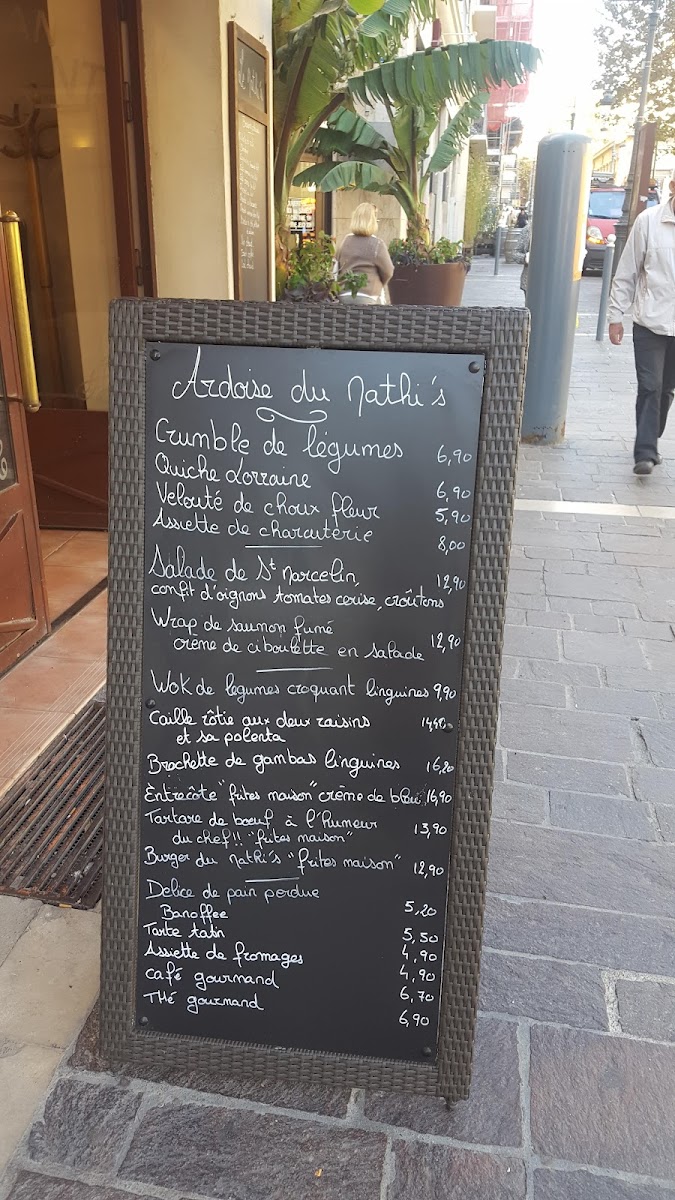 Ardoise du Nathi's
Crumble de légumes 6,90
Quiche Lorraine 6,90
Velouté de choux fleur 5,90
Assiette de charcuterie 8,00
Salade de St Marcelin, 12,90
confit d'oignons tomates cerise, croûtons
Wrap de saumon fumé 12,90
crème de ciboulette en salade
Wok de légumes croquant linguines 9,90
Caille rôtie aux deux raisins
et sa polenta
Brochette de gambas linguines 16,20
Entrecôte "frites maison" crème de bleu 16,90
Tartare de boeuf à l'humeur 13,90
du chef!! "frites maison"
Burger du Nathi's "frites maison" 12,90
Delice de pain perdue 5,20
Banoffee 5,50
Tarte tatin 4,90
Assiette de fromages 4,90
Café gourmand 6,70
THé gourmand 6,90